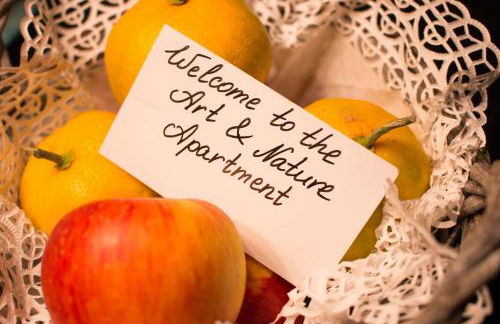 Welcome to the
Art & Nature
Apartment